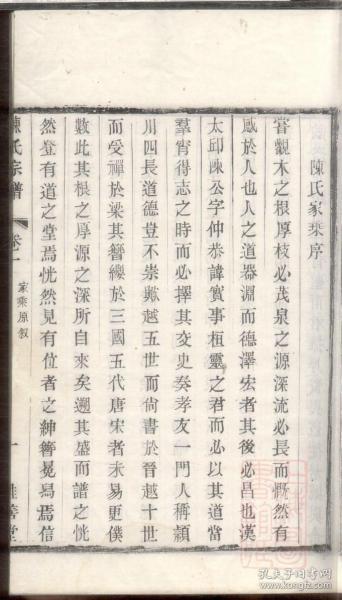 陳氏家乘序
嘗觀木之根厚枝必茂泉之源深流必長而慨然有
感於人也人之道器淵而德澤宏者其後必昌也漢
太邱陳公字仲恭諱實事桓靈之君而必以其道當
羣宵得志之時而必擇其交史奏孝友一門人稱頴
川四長道德豈不崇歟越五世而尚書於晉越十世
而受禪於梁其簪纓於三國五代唐宋者未易更僕
數此其根之厚源之深所自來矣遡其盛而譜之恍
然登有道之堂焉恍然見有位者之紳簪冕舄焉信
陳氏宗譜
卷一
家乘原敘
一
堂
孔夫子旧书网